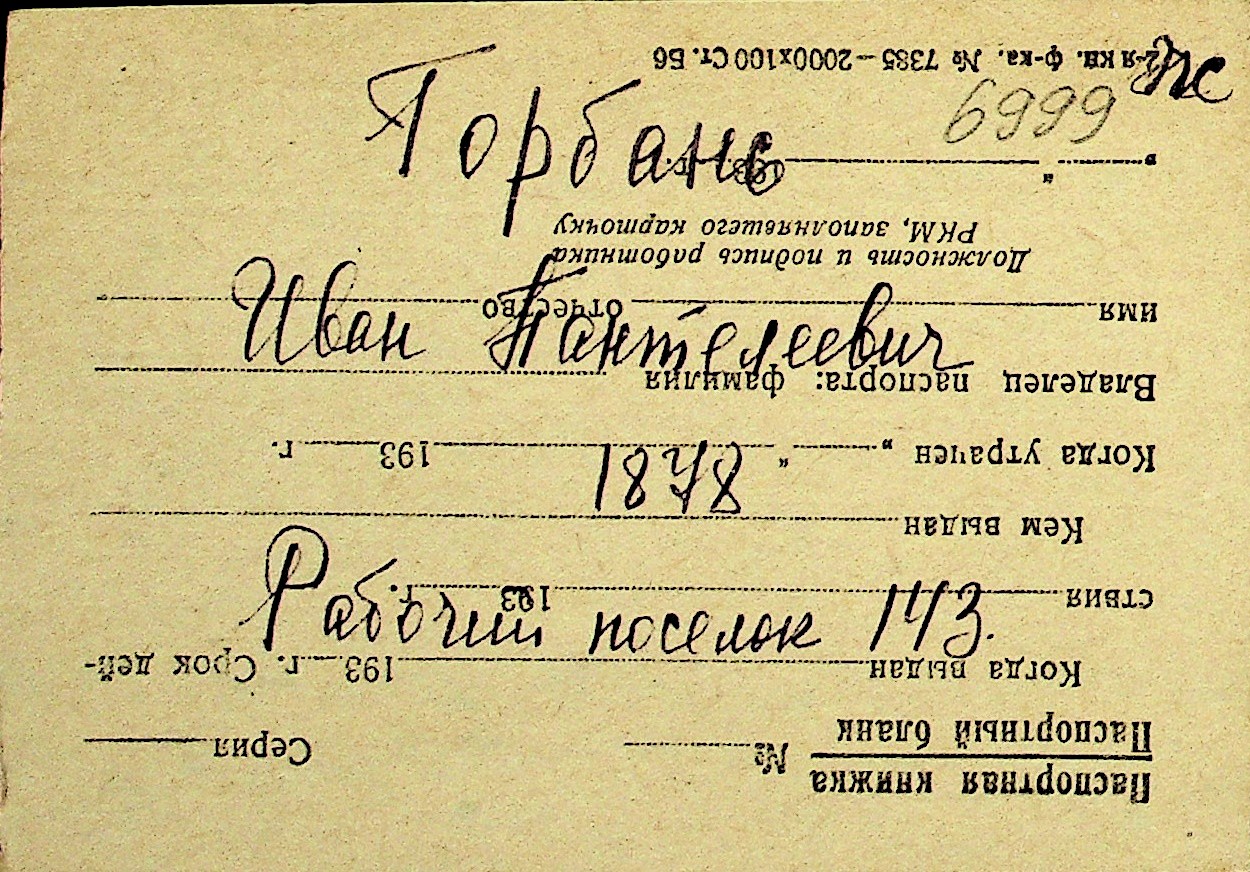 Горбань
Иван Пантелеевич
1878
Рабочий поселок 143.
6999
Паспортная книжка
Паспортный бланк
№ Серия
Когда выдан 193 г. Срок дей-
ствия 193 г.
Кем выдан
Когда утрачен „ “ 193 г.
Владелец паспорта: фамилия
имя отчество
Должность и подпись работника
РКМ, заполнявшего карточку
„ “ 193 г.
2-я кн. ф-ка. № 7385—2000х100 Ст. Б6